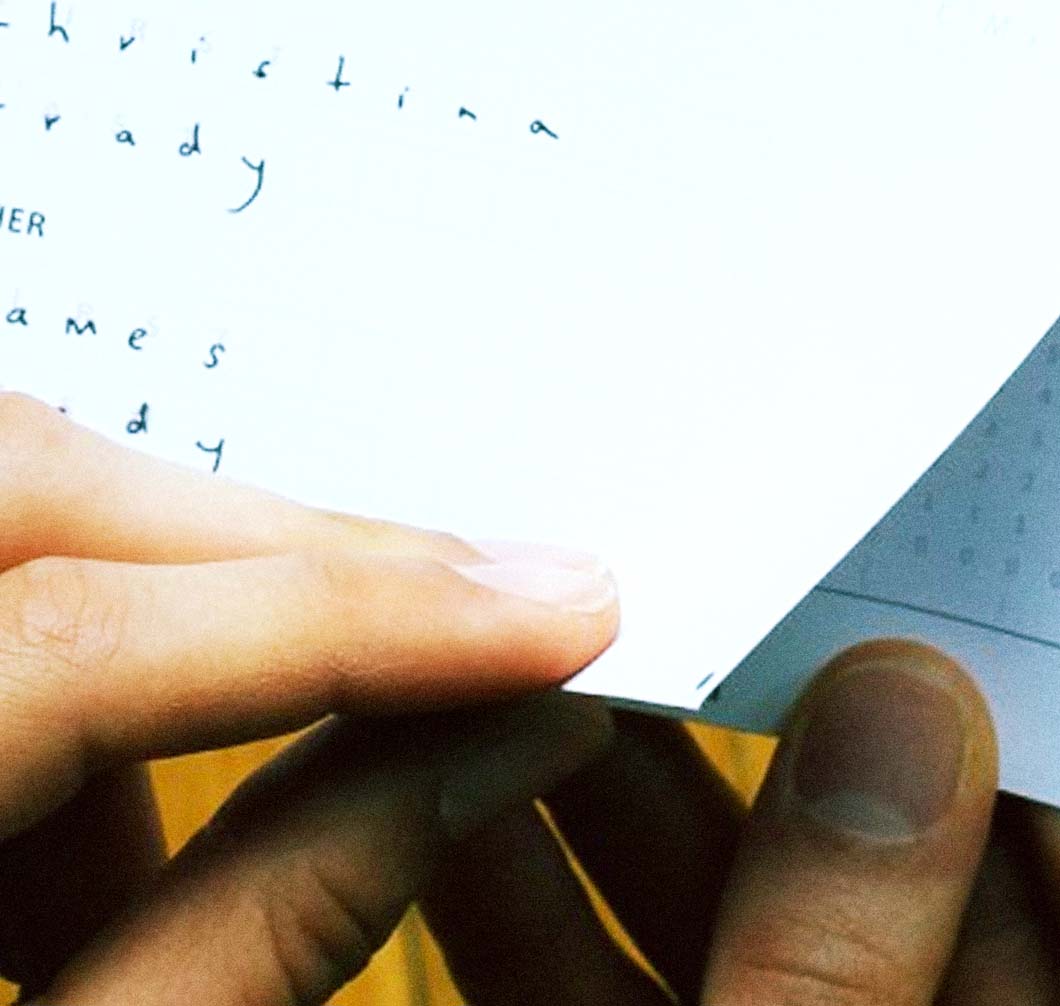 hristina
rady
HER
ames
dy